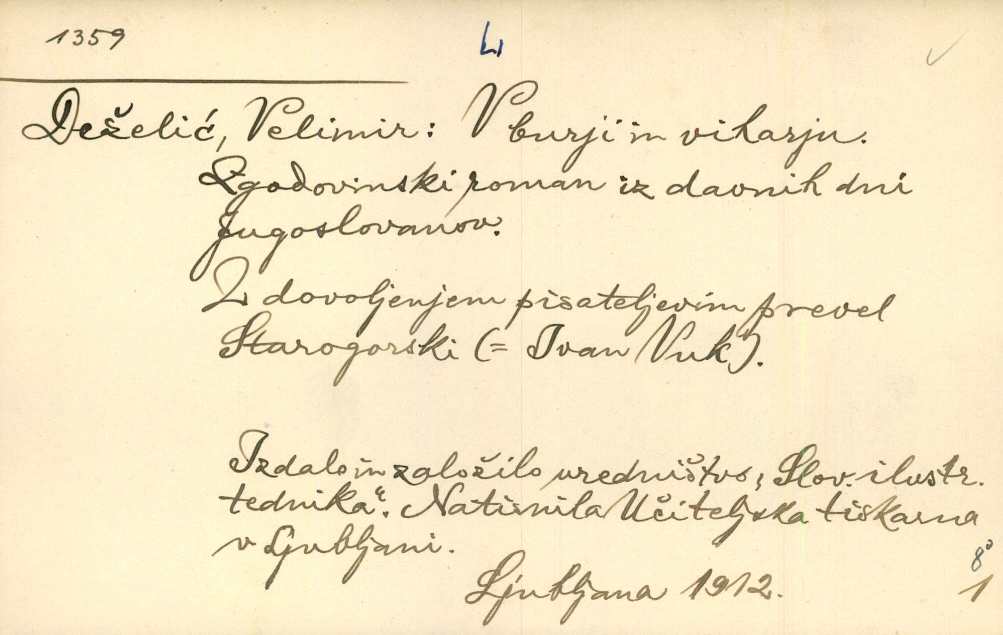 1359
L
Deželić, Velimir: V burji in viharju.
Zgodovinski roman iz davnih dni
Jugoslovanov.
Z dovoljenjem pisateljevim prevel
Starogorski (= Ivan Vuk).
Izdalo in založilo uredništvo „Slov. ilustr.
tednika“. Natisnila Učiteljska tiskarna
v Ljubljani.
Ljubljana 1912.
8°
1